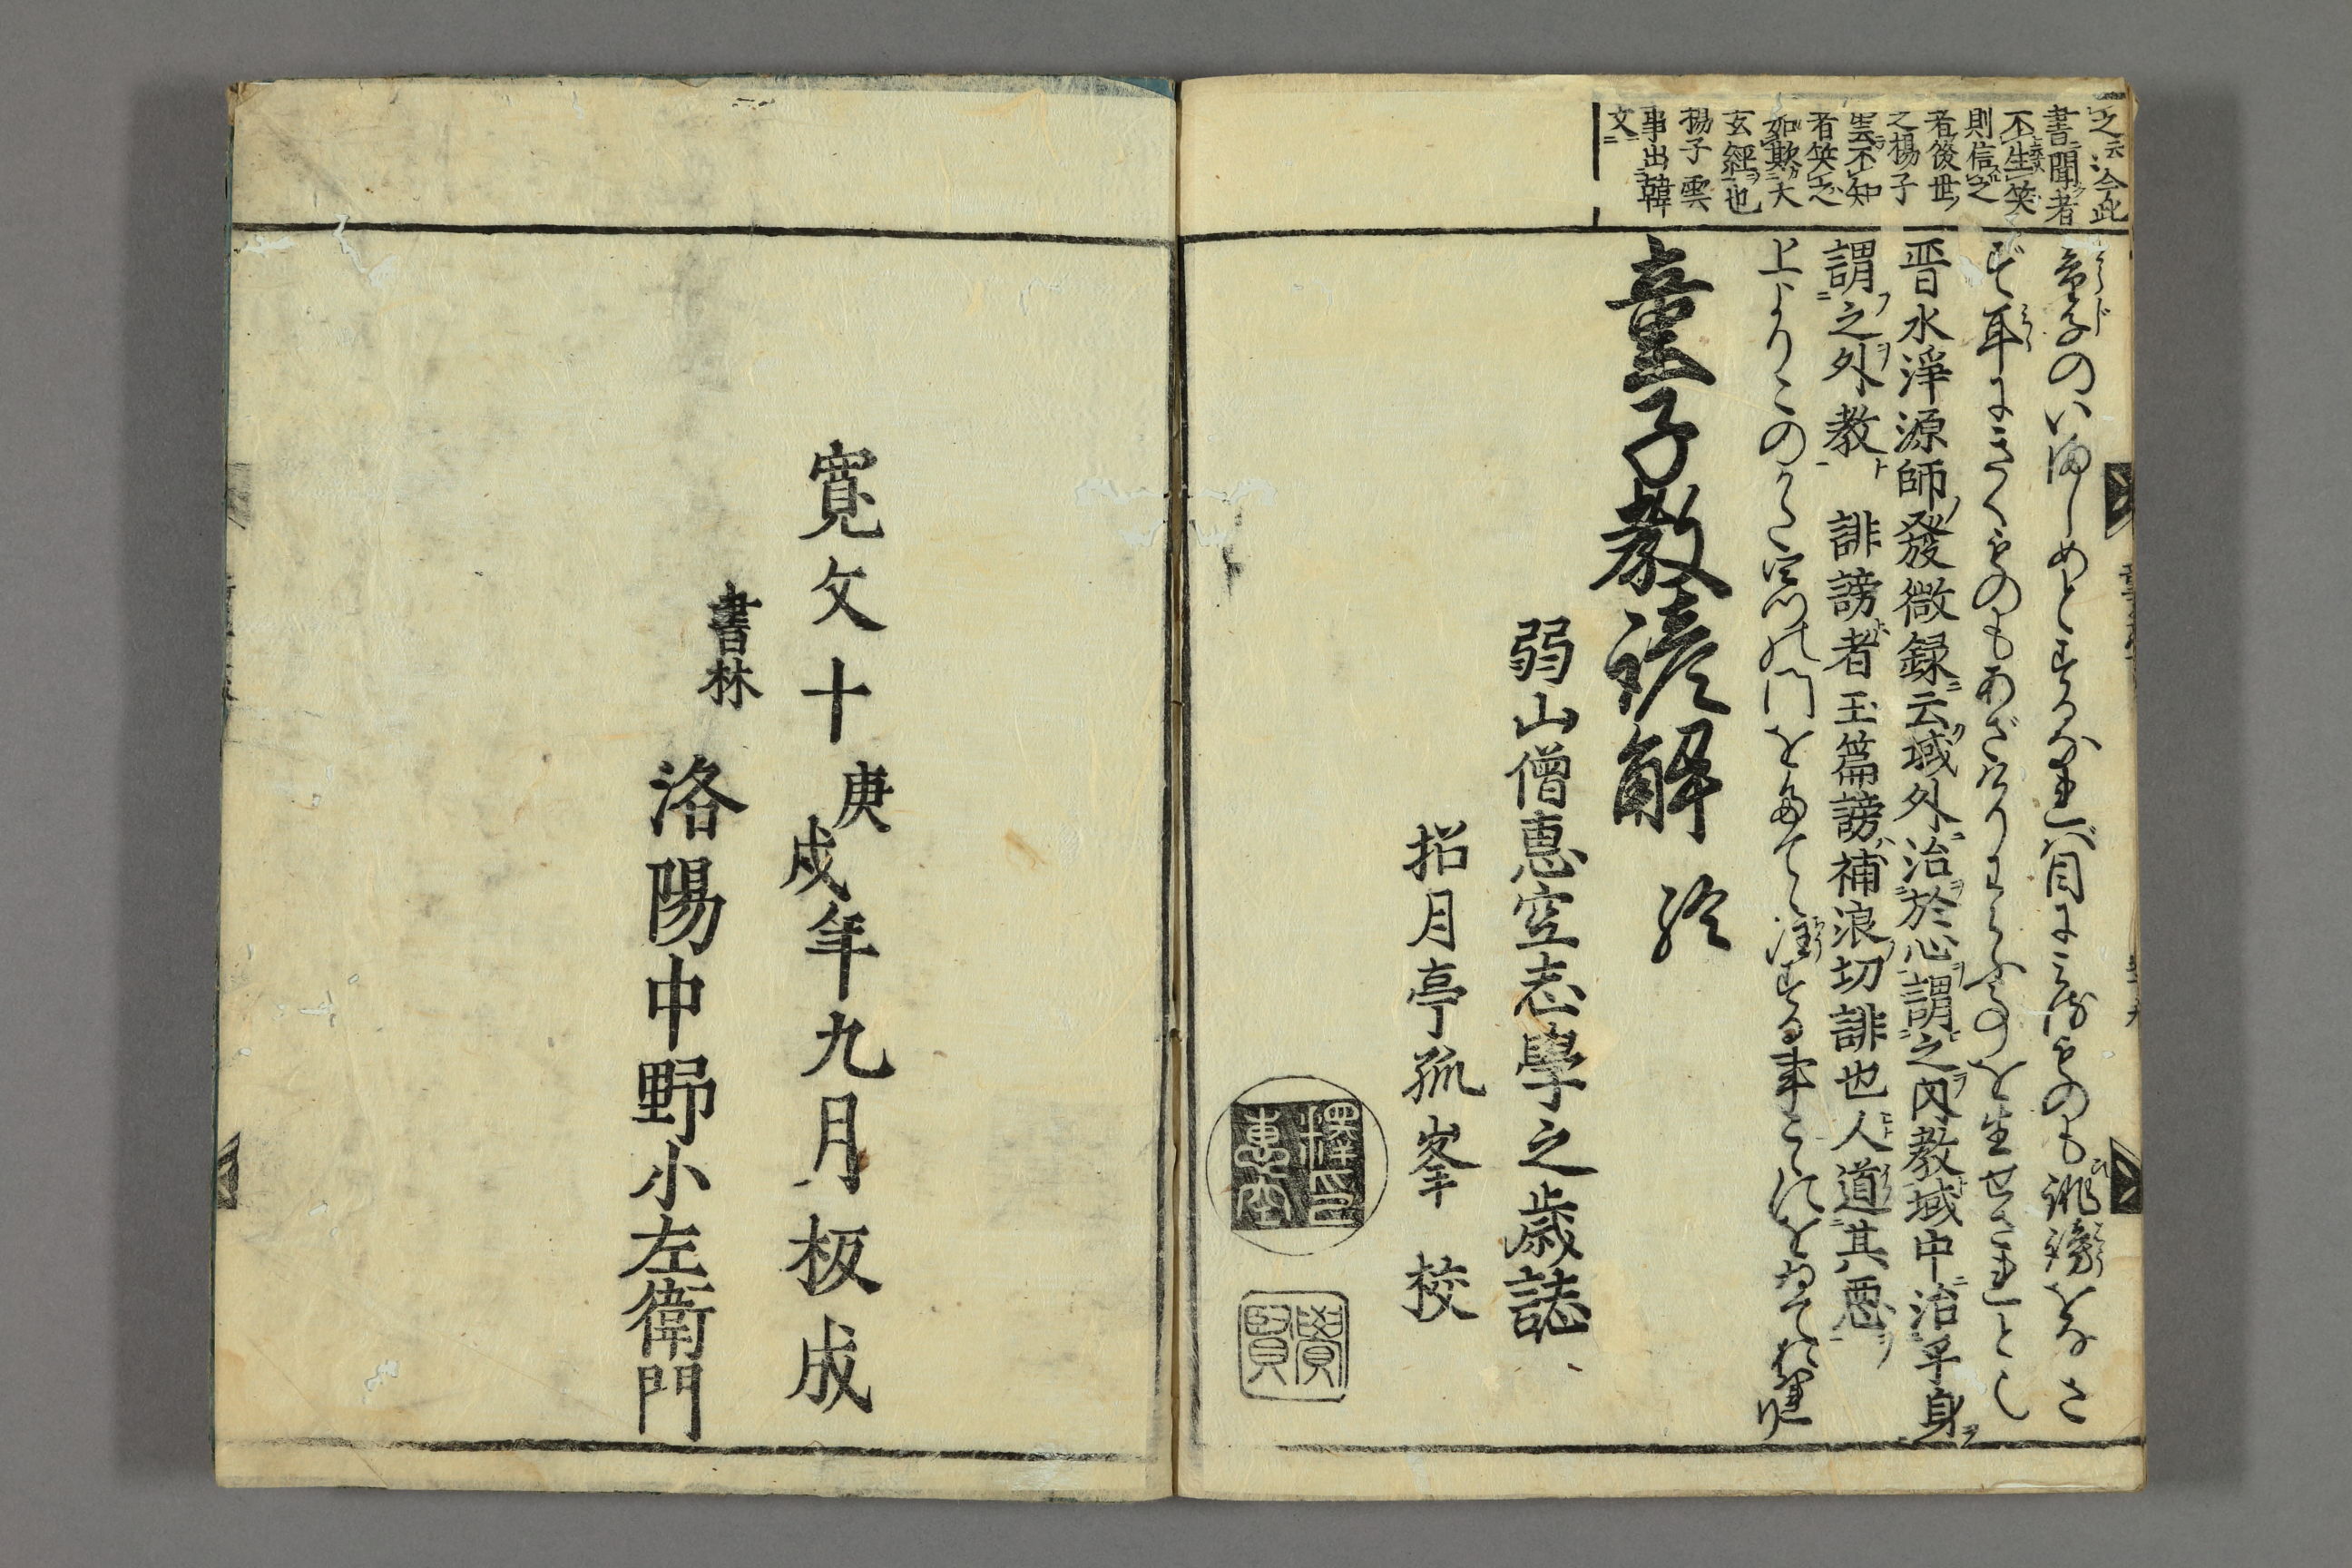 之云今此
書聞者
不生笑
則信之
者後世
之楊子
雲不知
者笑之
如欺大
玄經也
楊子雲
事出韓
文
童子のいましめとするなれば目にみるものも誹謗をなさ
ず耳にきくものもあざけりわらふ事を生せされとし
晋水淨源師發微録云域外治於心謂之内教域中治乎身
謂之外教 誹謗者玉篇謗補浪切誹也人道其悪
上よりこのかた
童子教諺解 終
弱山僧惠空志學之歳誌
招月亭孤峯 校
釋氏惠空
學賢
寛文十庚戌年九月板成
書林 洛陽中野小左衛門